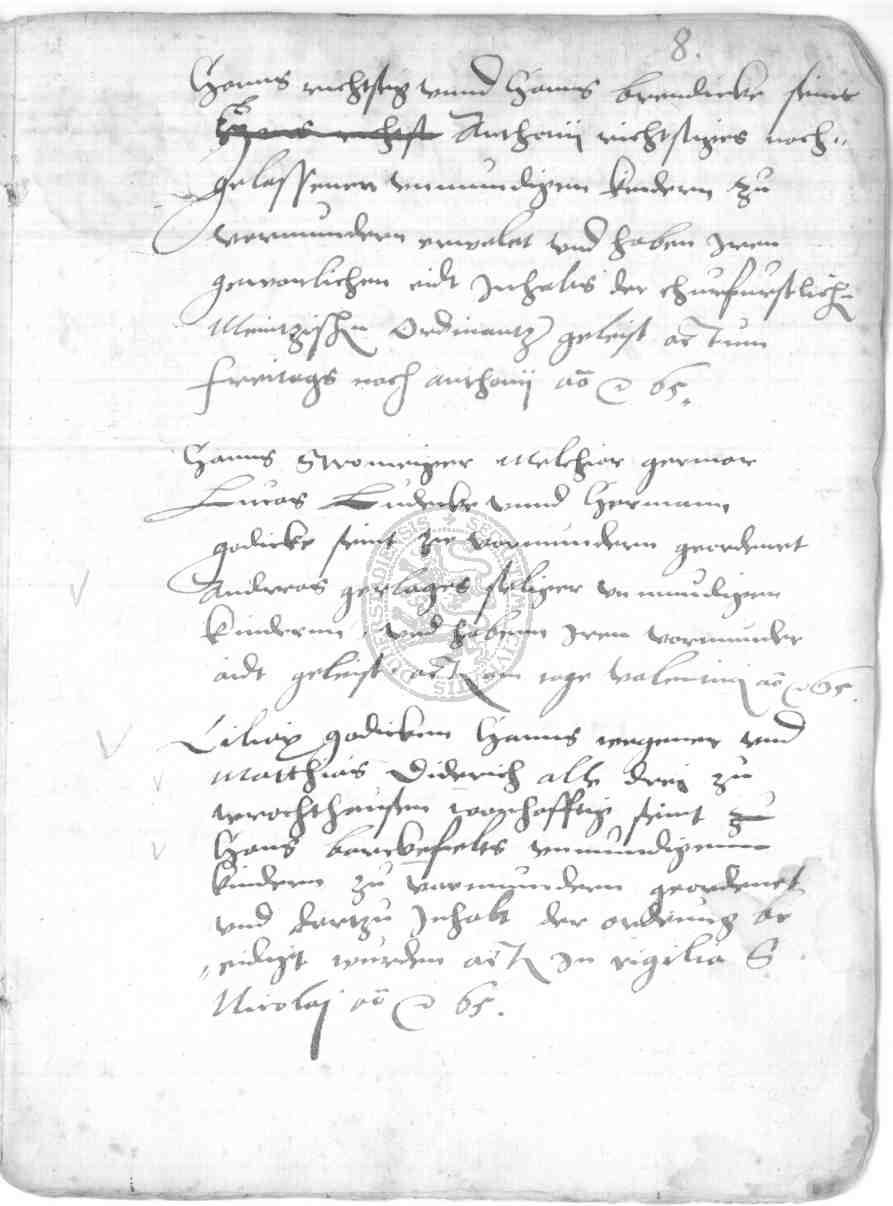 8.
Hanns richtstig unnd Hanns brendicke seint
Hans richst Anthonij richtstiges noch-
gelassenen unmundigenn kindern zu
vormundern erwelet und haben Iren
gewonlichen eidt Inhalts der churfurstlichn
Meintzischn Ordinantz geleist actum
freitags nach anthonij ao 65.
Hanns Melchior germar
Lucas Ludecke unnd Hermann
godicke seint zu vormundern geordenet
Andreas gerlages seliger unmundigen
kindernn, und habenn Iren vormunder
aidt geleist act am tage valentini ao 65.
Ciliax godicken Hanns wegener und
Matthias Diderich alle drei zu
wrochthausen wonhafftig seint zu
Hans barckefelts unmundigenn
kindern zu vormundern geordenet
und dartzu Inhalt der ordnung be
eidigt wurden act In vigilia S
Nicolaj ao 65.